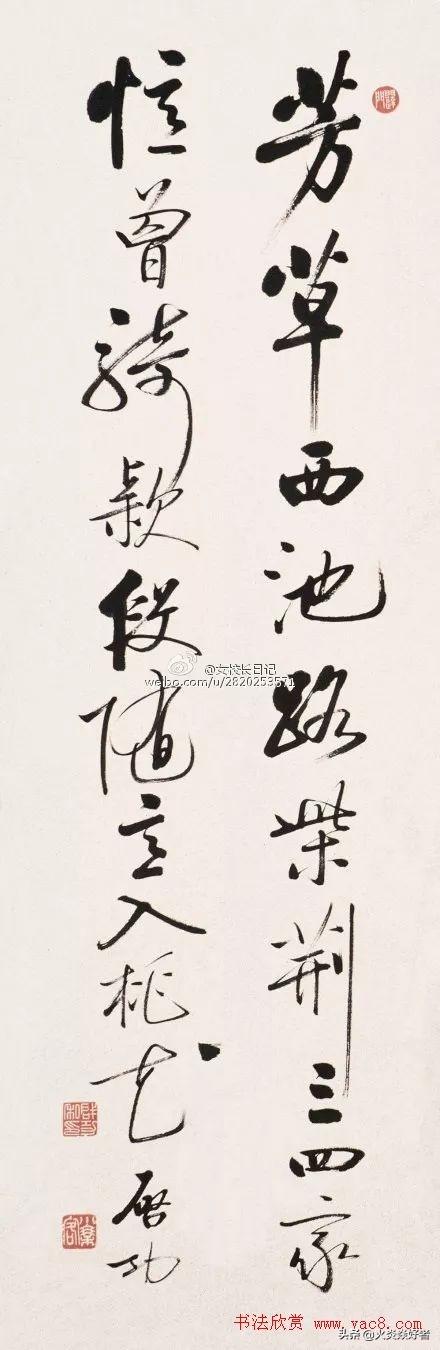 芳草西池路柴荆三四家
忆曾骑款段随意入桃花 启功
@女校长日记
weibo.com/u/2820253571
书法欣赏 www.yac8.com
头条 @火炎焱好者